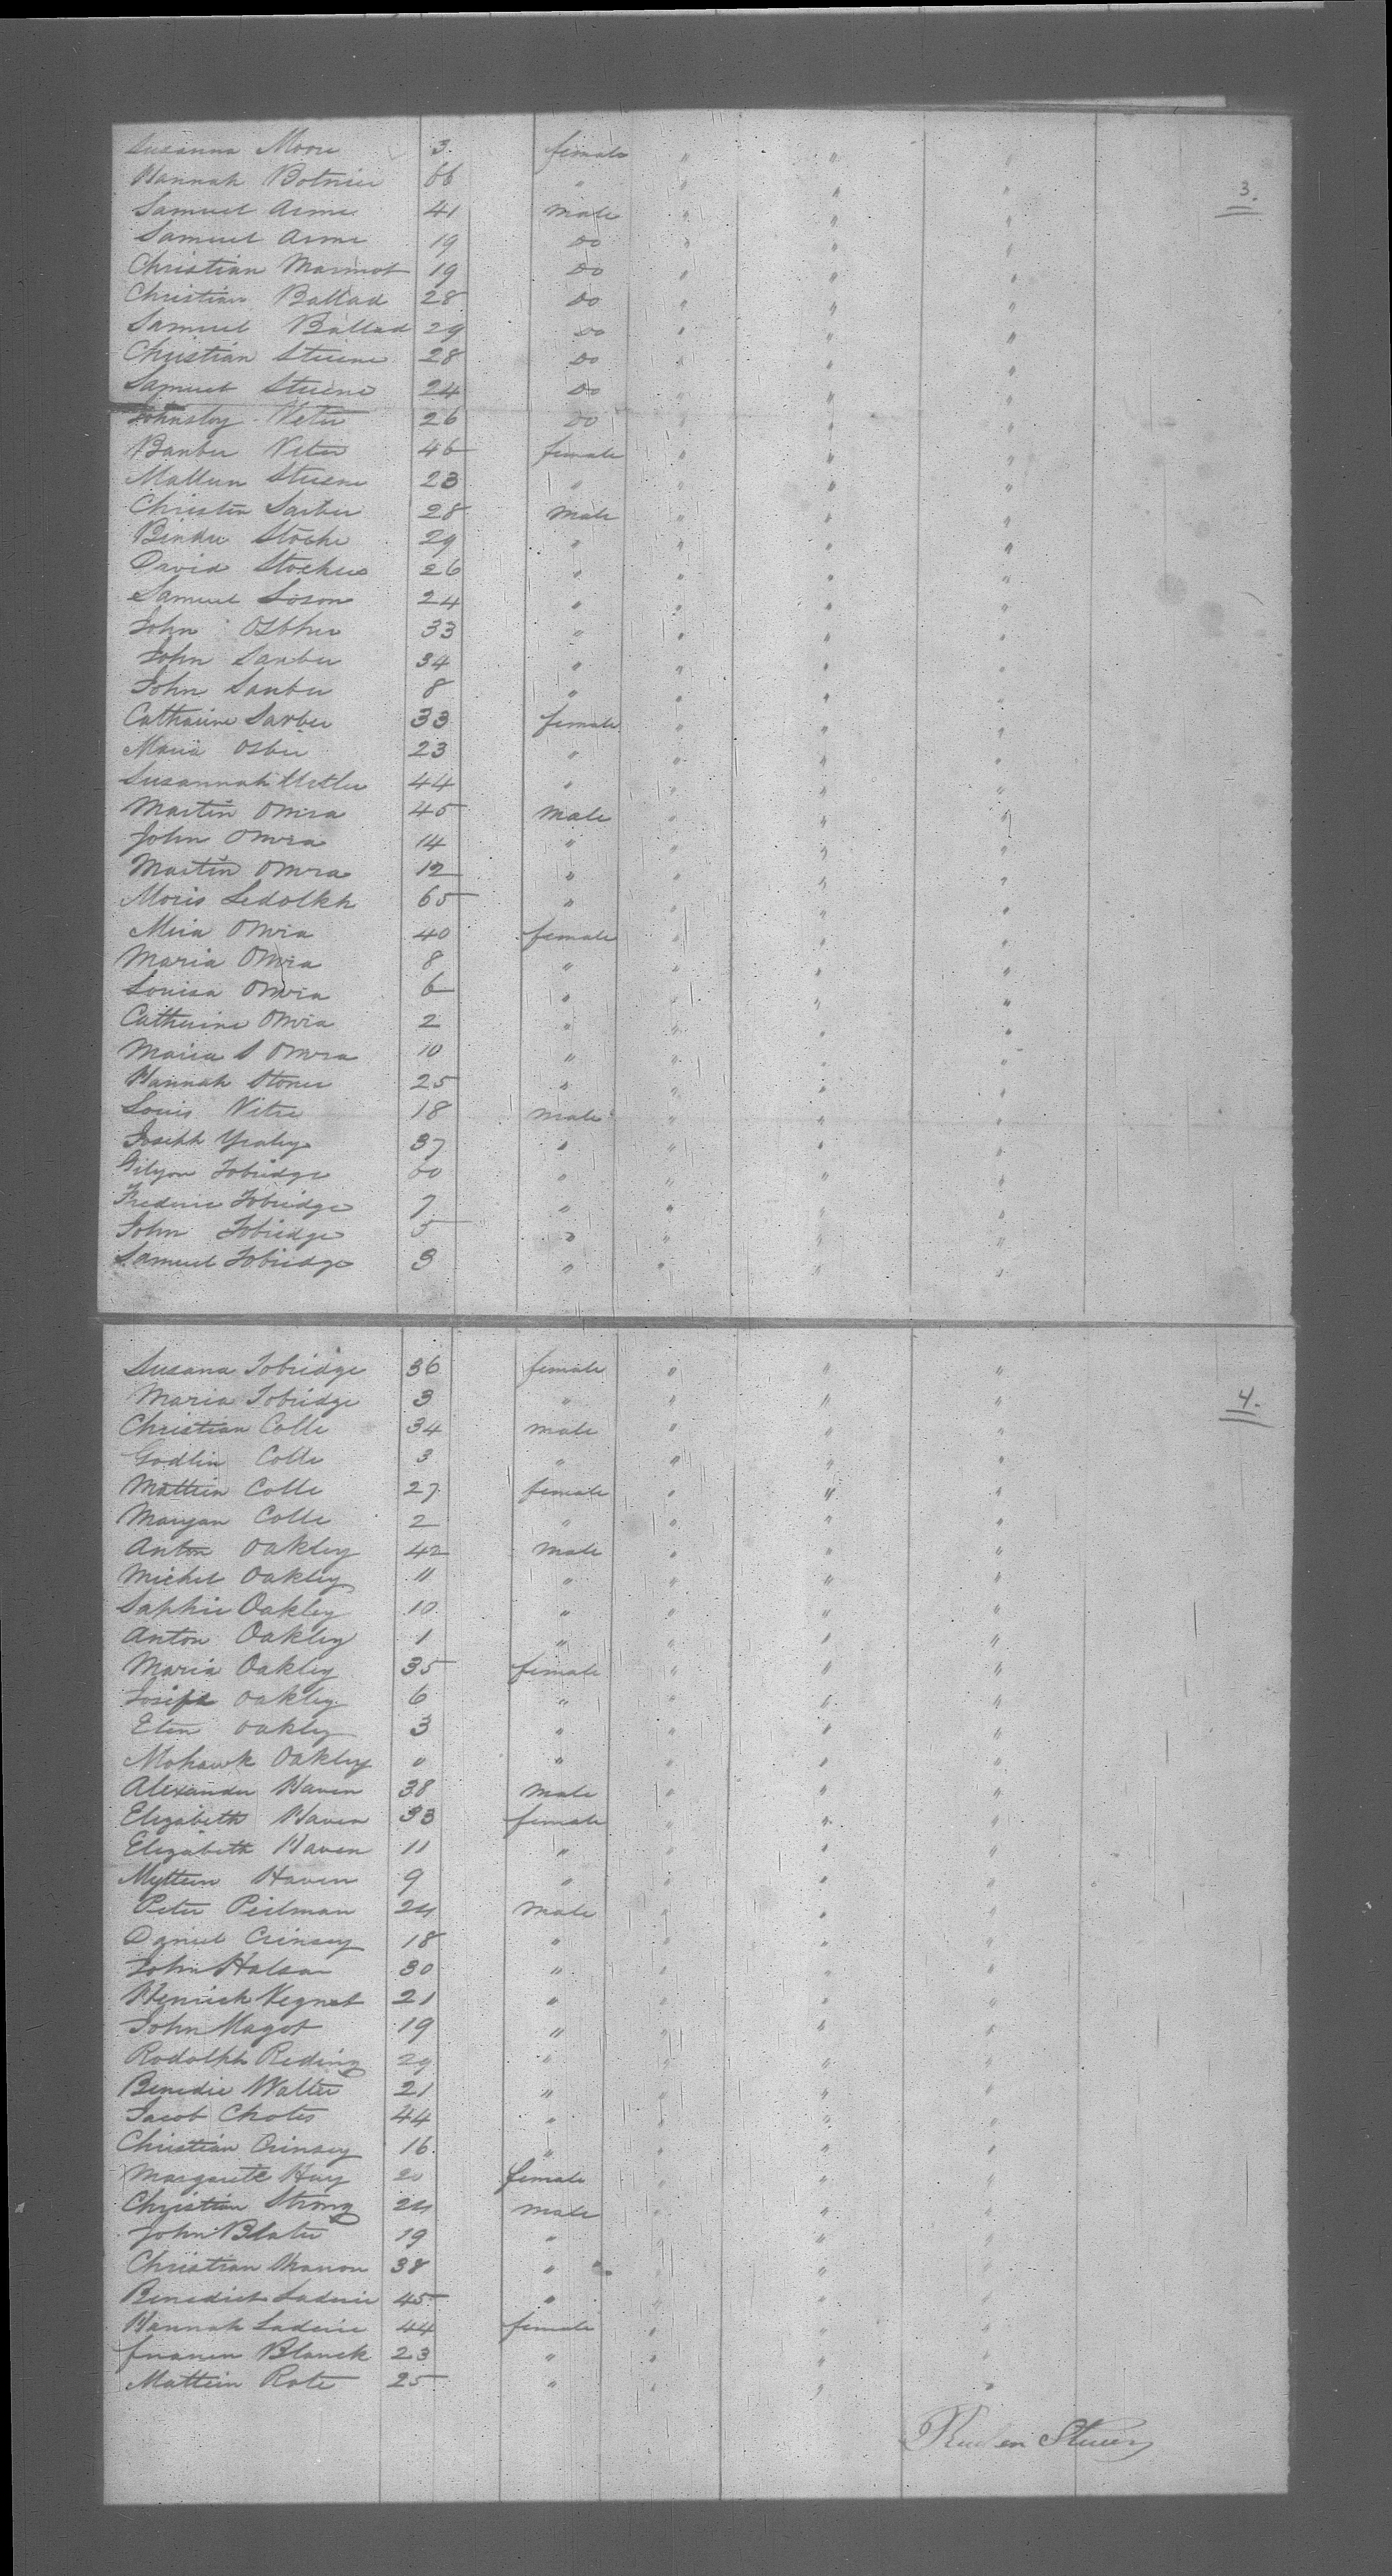 Susanna Moore 3. female " " "
Hannah Botnier 66 " " " " 3.
Samuel Arme 41 male " " "
Samuel Arme 19 Do " " "
Christian Marmot 19 Do " " "
Christian Ballad 28 Do " " "
Samuel Ballad 29 Do " " "
Christian Stuene 28 Do " " "
Samuel Stuene 24 Do " " "
Veter 26 Do " " "
Banber Veter 46 female " " "
Mattun Stuene 23 " " " "
Christen Sarber 28 Male " " "
Stocke 29 " " " "
David Stocker 26 " " " "
Samuel Soson 24 " " " "
John Osther 33 " " " "
John Sanber 34 " " " "
John Sanber 8 " " " "
Catharine Sarber 33 female " " "
Maria Osber 23 " " " "
Susannah 44 " " " "
Martin Omra 45 Male " " "
John Omra 14 " " " "
Martin Omra 12 " " " "
Moris Ledolkh 65 " " " "
Meia Omra 40 female " " "
Maria Omra 8 " " " "
Louisa Omra 6 " " " "
Catherine Omra 2 " " " "
Maria S Omra 10 " " " "
Hannah Stoner 25 " " " "
Louis Vitre 18 male " " "
Joseph Yealey 37 " " " "
Tobridge 60 " " " "
Frederic Tobridge 7 " " " "
John Tobridge 5 " " " "
Samuel Tobridge 3 " " " "
Susana Tobridge 36 female " " "
Maria Tobridge 3 " " " " 4.
Christian Colle 34 male " " "
Godlin Colle 3 " " " "
Mattein Colle 27 female " " "
Maryan Colle 2 " " " "
Anton Oakley 42 male " " "
Michel Oakley 11 " " " "
Saphie Oakley 10 " " " "
Anton Oakley 1 " " " "
Maria Oakley 35 female " " "
Joseph Oakley 6 " " " "
Eten Oakley 3 " " " "
Mohawk Oakley 0 " " " "
Alexander Haven 38 Male " " "
Elizabeth Haven 33 female " " "
Elizabeth Haven 11 " " " "
Myttein Haven 9 " " " "
Peter Peilman 24 Male " " "
Daniel Crinsey 18 " " " "
John Halsa 30 " " " "
Henrick Vegnet 21 " " " "
John Magot 19 " " " "
Rodolph Reding 29 " " " "
Benedic Walter 21 " " " "
Jacob Chotes 44 " " " "
Christian Crinsey 16 " " " "
Margarite Huy 20 female " " "
Christian Strong 24 male " " "
John Blater 19 " " " "
Christian 38 " " " "
Benedict Laderie 45 " " " "
Hannah Laderie 44 female " " "
Blanck 23 " " " "
Mattein Rote 25 " " " "